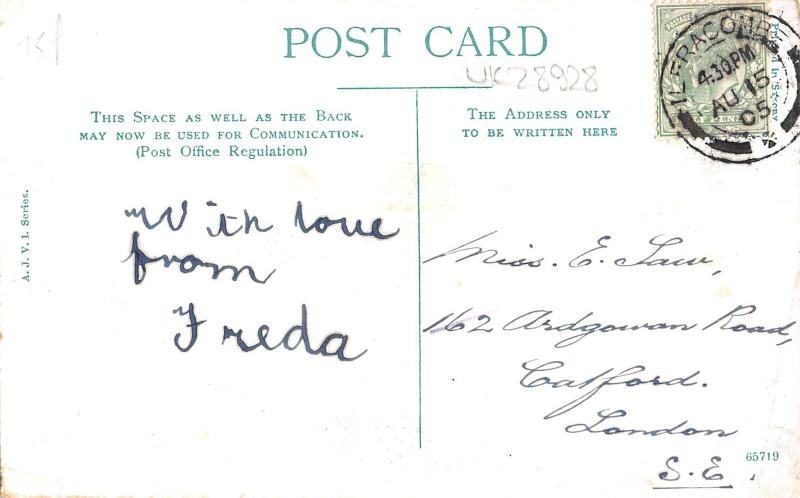 15/
POST CARD
UK28928
THIS SPACE AS WELL AS THE BACK
MAY NOW BE USED FOR COMMUNICATION.
(Post Office Regulation)
THE ADDRESS ONLY
TO BE WRITTEN HERE
ILFRACOMBE
4.30PM
AU 15
05
POSTAGE
Printed in Saxony
A. J. V. I. Series.
With love
from
Freda
Miss. E. Law,
162 Ardgowan Road,
Catford.
London
S.E.
65719